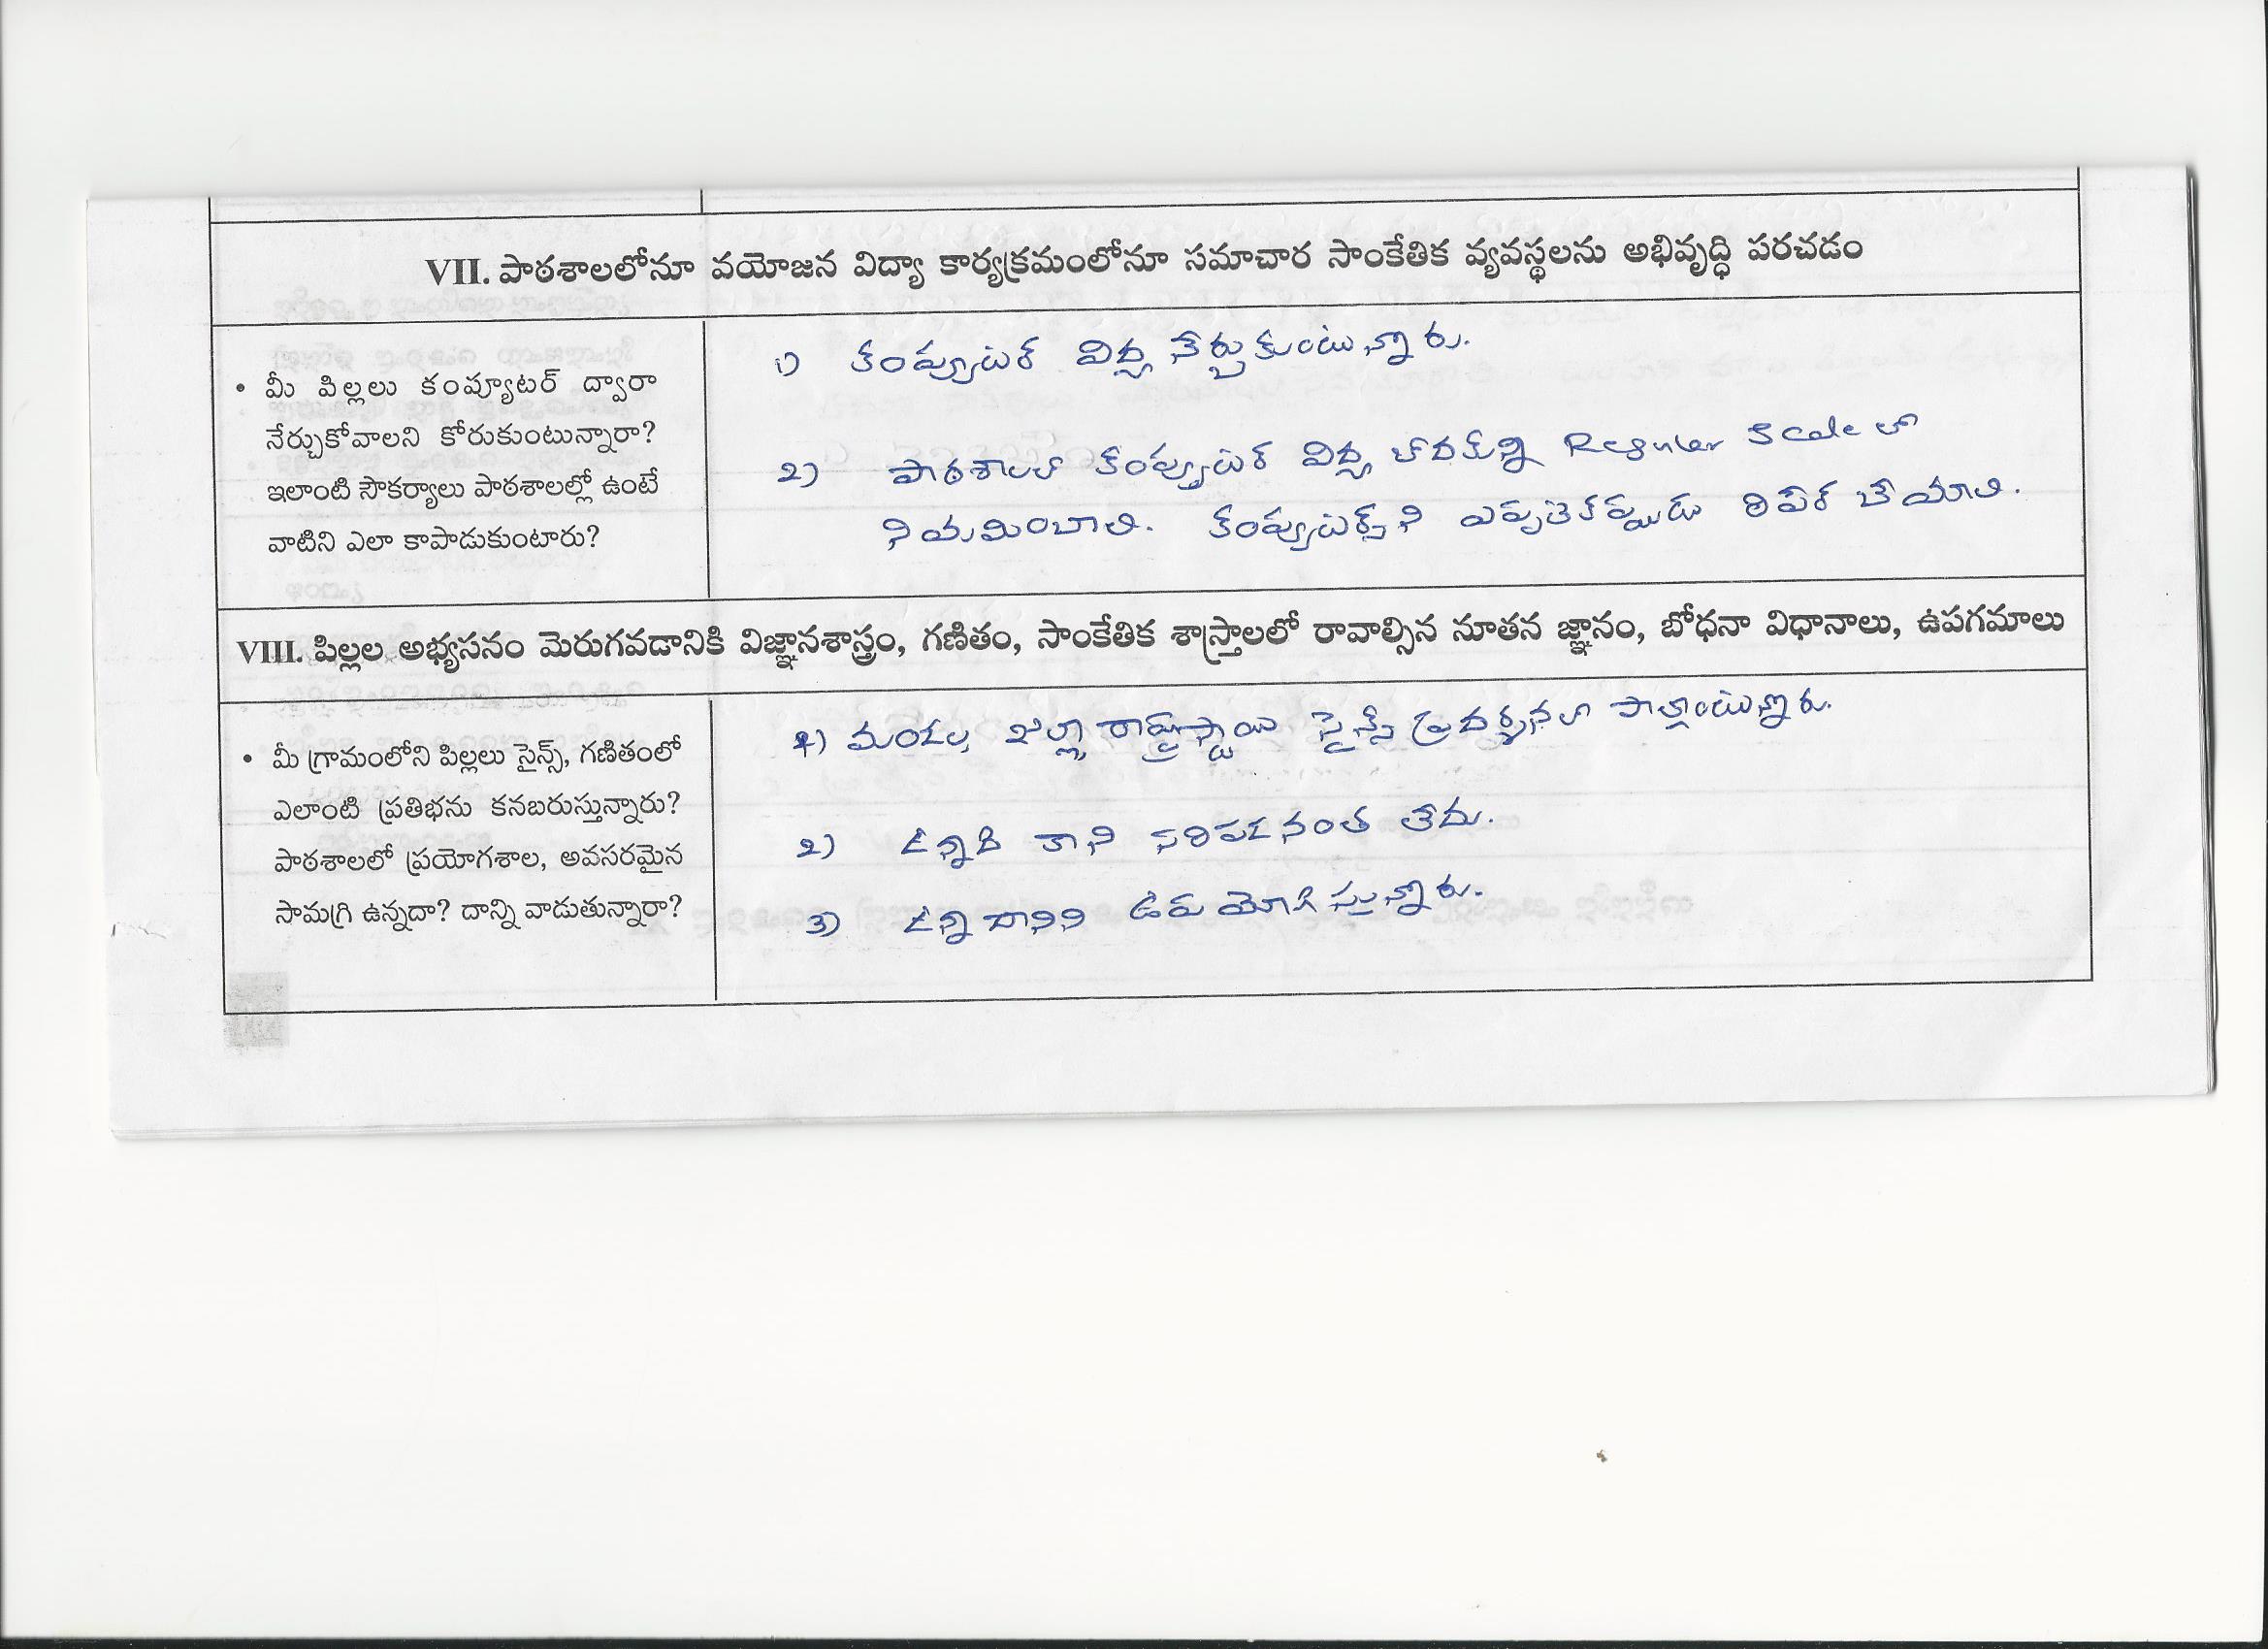 VII. పాఠశాలలోనూ వయోజన విద్యా కార్యక్రమంలోనూ సమాచార సాంకేతిక వ్యవస్థలను అభివృద్ధి పరచడం
• మీ పిల్లలు కంప్యూటర్ ద్వారా
నేర్చుకోవాలని కోరుకుంటున్నారా?
ఇలాంటి సౌకర్యాలు పాఠశాలల్లో ఉంటే
వాటిని ఎలా కాపాడుకుంటారు?
1) కంప్యూటర్ విద్య నేర్చుకుంటున్నారు.
2) పాఠశాలలో కంప్యూటర్ విద్య Regular Scale లో
నియమించాలి. కంప్యూటర్స్ ని ఎప్పటికప్పుడు రిపేర్ చేయాలి.
VIII. పిల్లల అభ్యసనం మెరుగవడానికి విజ్ఞానశాస్త్రం, గణితం, సాంకేతిక శాస్త్రాలలో రావాల్సిన నూతన జ్ఞానం, బోధనా విధానాలు, ఉపగమాలు
• మీ గ్రామంలోని పిల్లలు సైన్స్, గణితంలో
ఎలాంటి ప్రతిభను కనబరుస్తున్నారు?
పాఠశాలలో ప్రయోగశాల, అవసరమైన
సామగ్రి ఉన్నదా? దాన్ని వాడుతున్నారా?
1) మండల, జిల్లా రాష్ట్రస్థాయి సైన్స్ ప్రదర్శనలో పాల్గొంటున్నారు.
2) ఉన్నది కాని సరిపడనంత లేదు.
3) ఉన్న దానిని ఉపయోగిస్తున్నారు.